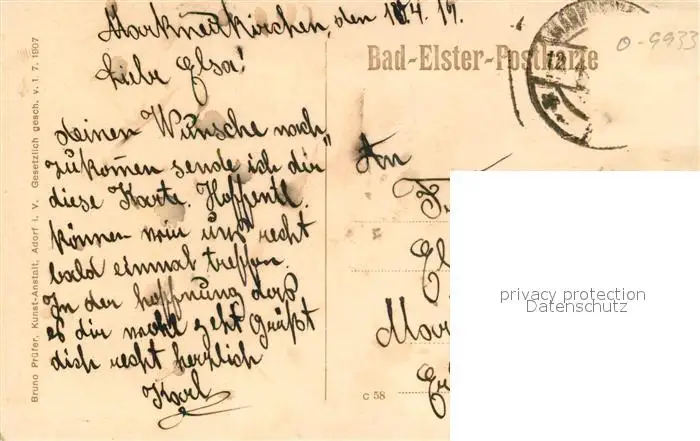 Markneukirchen, den 18.4.19.
Liebe Elsa!
deinen Wunsche nach
zukommen sende ich dir
diese Karte. Hoffentl.
können wir uns recht
bald einmal treffen.
In der hoffnung daß
es dir wohl geht grüßt
dich recht herzlich
Karl
Bad-Elster-Postkarte
0-9933
An
Mar
c 58
Bruno Prüfer, Kunst-Anstalt, Adorf i. V. Gesetzlich gesch. v. 1. 7. 1907
privacy protection
Datenschutz